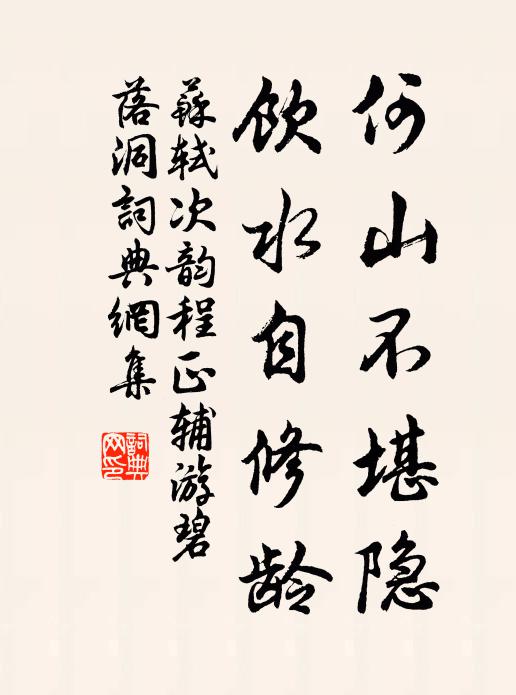 何山不堪隐
饮水自修龄
蘇轼次韵程正辅游碧
落洞詞典網集
詞典
网印